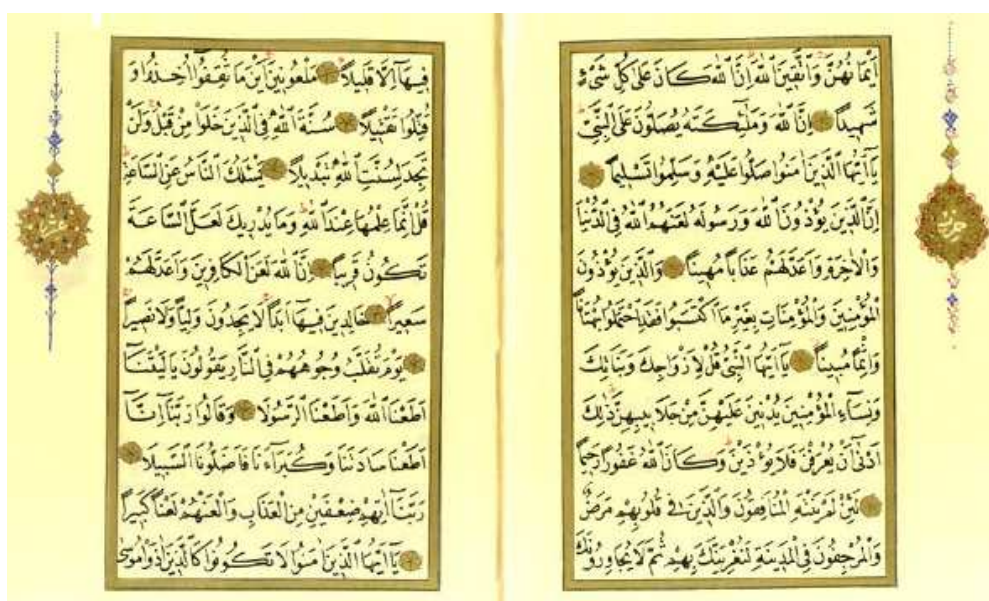 اَيْمَانُهُنَّ وَاتَّقِينَ اللّٰهَ اِنَّ اللّٰهَ كَانَ عَلٰى كُلِّ شَىْءٍ
شَهِيداً اِنَّ اللّٰهَ وَمَلٰٓئِكَتَهُ يُصَلُّونَ عَلَى النَّبِىِّ
يَٓا اَيُّهَا الَّذِينَ اٰمَنُوا صَلُّوا عَلَيْهِ وَسَلِّمُوا تَسْلِيماً
اِنَّ الَّذِينَ يُؤْذُونَ اللّٰهَ وَرَسُولَهُ لَعَنَهُمُ اللّٰهُ فِى الدُّنْيَا
وَالْاٰخِرَةِ وَاَعَدَّ لَهُمْ عَذَاباً مُهِيناً وَالَّذِينَ يُؤْذُونَ
الْمُؤْمِنِينَ وَالْمُؤْمِنَاتِ بِغَيْرِ مَا اكْتَسَبُوا فَقَدِ احْتَمَلُوا بُهْتَاناً
وَاِثْماً مُبِيناً يَٓا اَيُّهَا النَّبِىُّ قُلْ لِاَزْوَاجِكَ وَبَنَاتِكَ
وَنِسَٓاءِ الْمُؤْمِنِينَ يُدْنِينَ عَلَيْهِنَّ مِنْ جَلَابِيبِهِنَّ ذٰلِكَ
اَدْنٰٓى اَنْ يُعْرَفْنَ فَلَا يُؤْذَيْنَ وَكَانَ اللّٰهُ غَفُوراً رَحِيماً
لَئِنْ لَمْ يَنْتَهِ الْمُنَافِقُونَ وَالَّذِينَ فِى قُلُوبِهِمْ مَرَضٌ
وَالْمُرْجِفُونَ فِى الْمَدِينَةِ لَنُغْرِيَنَّكَ بِهِمْ ثُمَّ لَا يُجَاوِرُونَكَ
حزب
فِيهَٓا اِلَّا قَلِيلاً مَلْعُونِينَ اَيْنَ مَا ثُقِفُٓوا اُخِذُوا وَ
قُتِّلُوا تَقْتِيلاً سُنَّةَ اللّٰهِ فِى الَّذِينَ خَلَوْا مِنْ قَبْلُ وَلَنْ
تَجِدَ لِسُنَّتِ اللّٰهِ تَبْدِيلاً يَسْـَٔلُكَ النَّاسُ عَنِ السَّاعَةِ
قُلْ اِنَّمَا عِلْمُهَا عِنْدَ اللّٰهِ وَمَا يُدْرِيكَ لَعَلَّ السَّاعَةَ
تَكُونُ قَرِيباً اِنَّ اللّٰهَ لَعَنَ الْكَافِرِينَ وَاَعَدَّ لَهُمْ
سَعِيراً خَالِدِينَ فِيهَٓا اَبَداً لَا يَجِدُونَ وَلِياًّ وَلَا نَصِيراً
يَوْمَ تُقَلَّبُ وُجُوهُهُمْ فِى النَّارِ يَقُولُونَ يَا لَيْتَنَٓا
اَطَعْنَا اللّٰهَ وَاَطَعْنَا الرَّسُولَا وَقَالُوا رَبَّنَٓا اِنَّٓا
اَطَعْنَا سَادَتَنَا وَكُبَرَٓاءَنَا فَاَضَلُّونَا السَّبِيلَا
رَبَّنَٓا اٰتِهِمْ ضِعْفَيْنِ مِنَ الْعَذَابِ وَالْعَنْهُمْ لَعْناً كَبِيراً
يَٓا اَيُّهَا الَّذِينَ اٰمَنُوا لَا تَكُونُوا كَالَّذِينَ اٰذَوْا مُوسٰى
عشر